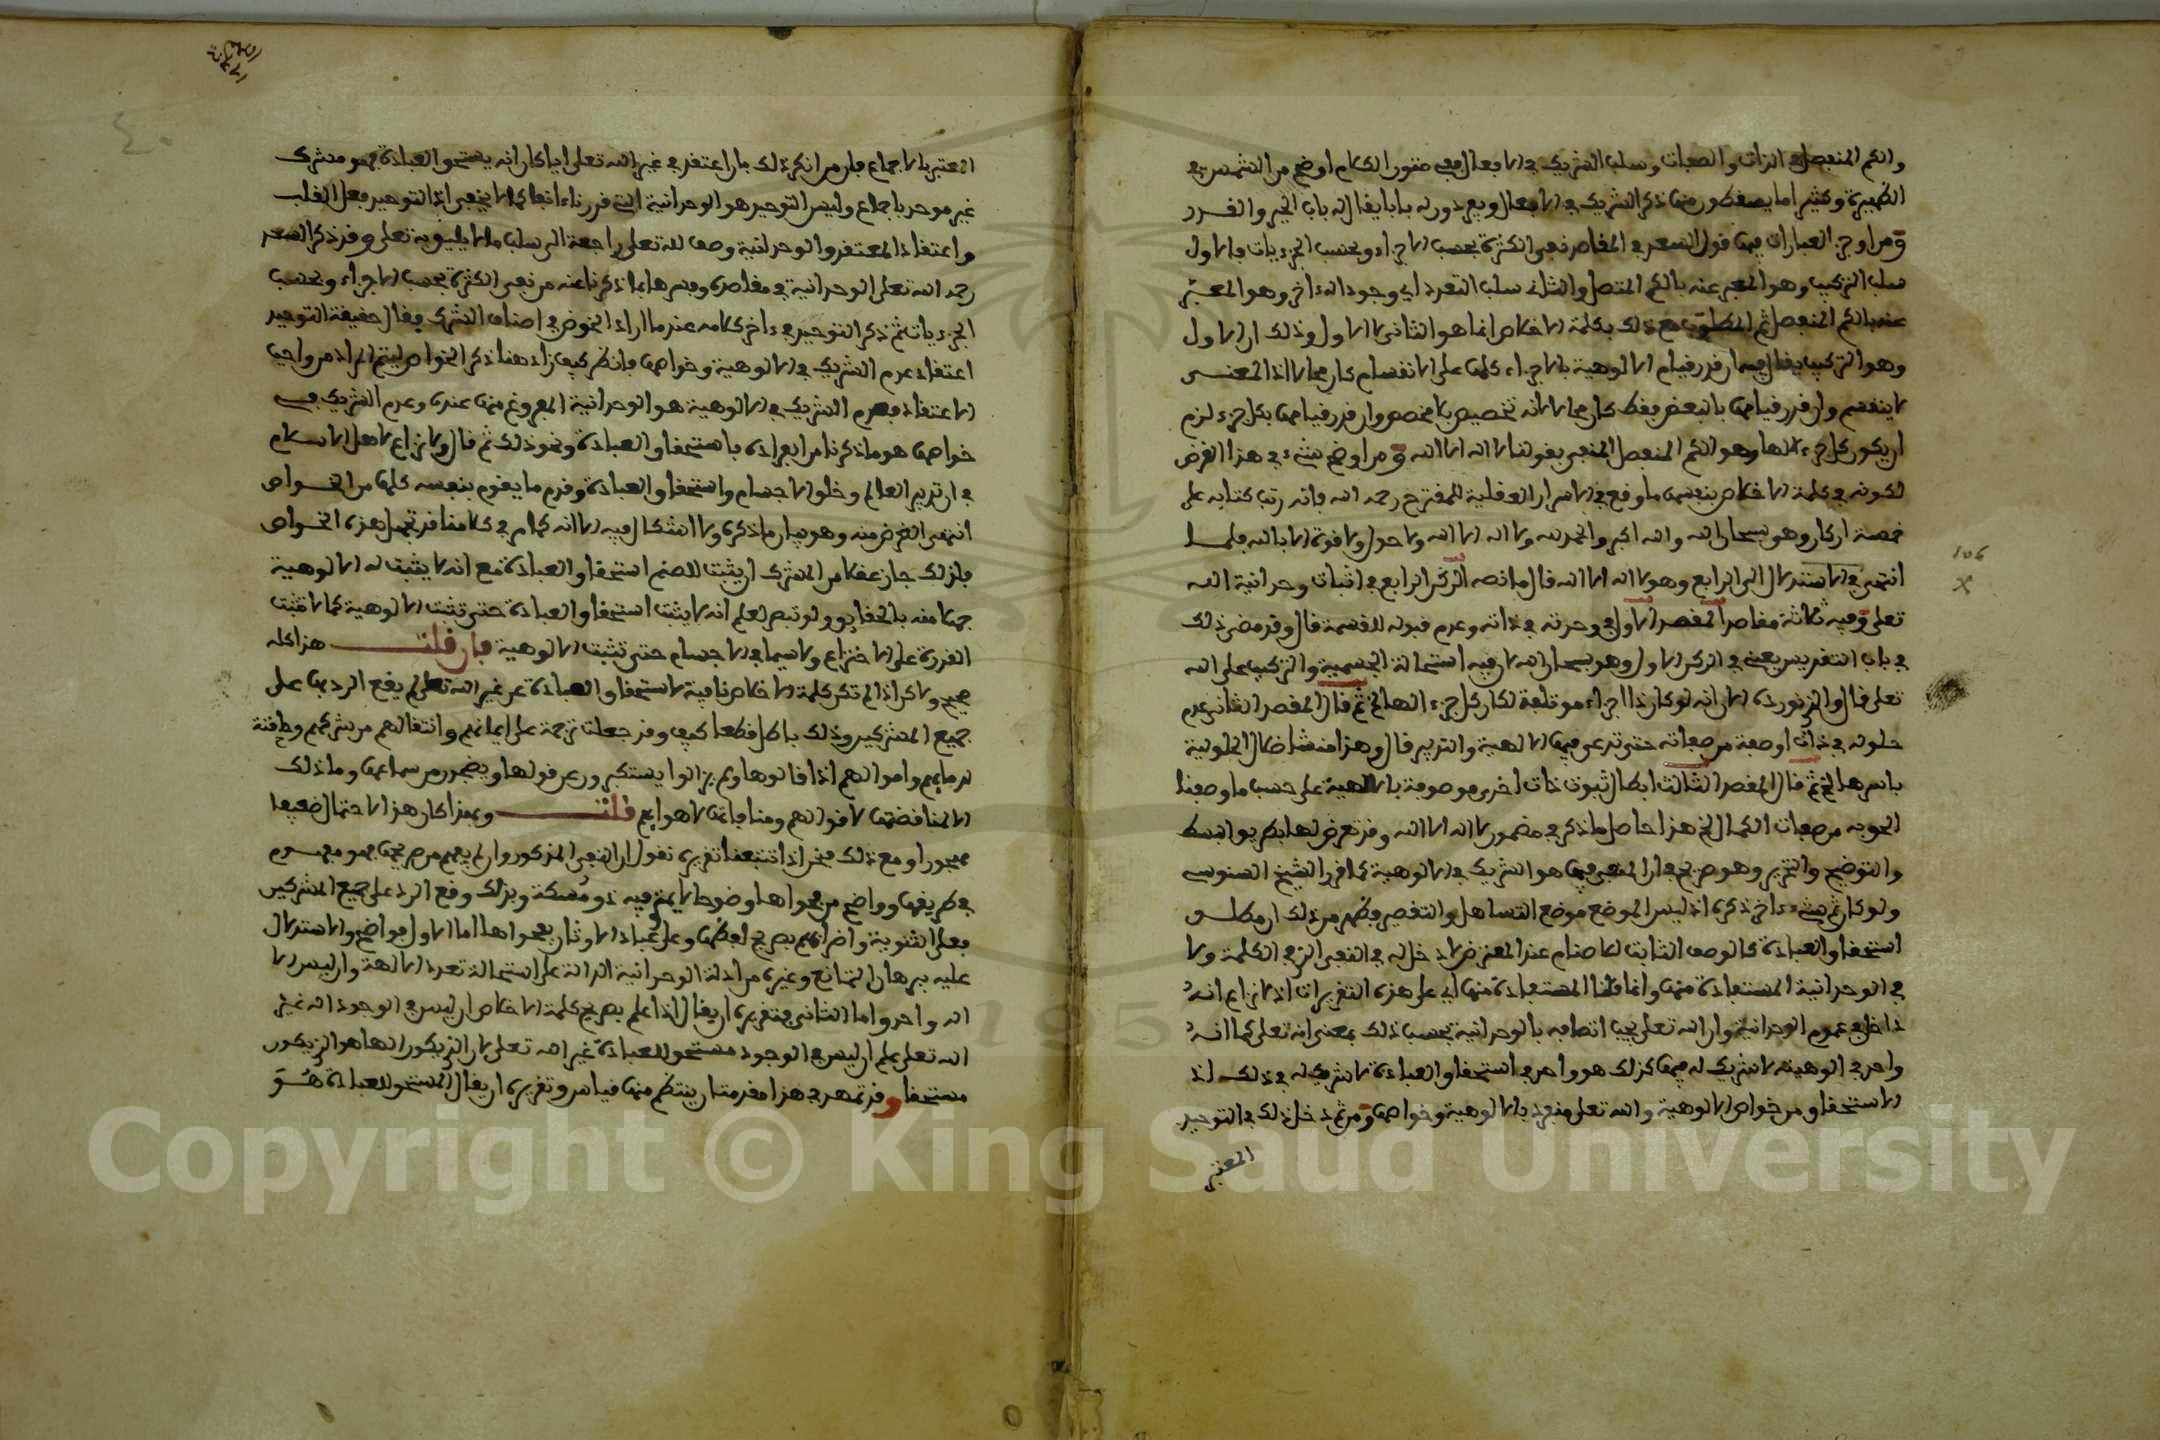 والكم المنفصل في الذات والصفات وسلب الشريك في الافعال ففي متون الكلام اوضح من الشمس في
الظهيرة وكثيرا ما يسقطون منها ذكر الشريك في الافعال ويعدون له بابا يقال له باب الجبر والقدر
ومن اوجز العبارات فيها قول السعد في المقاصد نفي الكثرة بحسب الاجزاء وبحسب الجزءيات فالاول
سلب التركيب وهو المعبر عنه بالكم المتصل والثاني سلب التعدد اي وجود اله ءاخر وهو المعبر
عنه بالكم المنفصل ثم المطلوب مع ذلك بكلمة الاخلاص انما هو الثاني لا الاول وذلك ان الاول
وهو التركيب يقال فيه ان قدر قيام الالوهية بالاجزاء كلها على الانقسام كان محالا اذ المعنى
لا ينقسم وان قدر قيامها بالبعض فقط كان محالا لانه تخصيص بلا مخصص وان قدر قيامها بكل جزء لزم
ان يكون كل جزء الاها وهو الكم المنفصل المنفي بقولنا لا اله الا الله ومن اوضح شيء في هذا الغرض
لكونه في كلمة الاخلاص بنفسها ما وقع في الاسرار العقلية للمقترح رحمه الله فانه رتب كتابه على
خمسة اركان وهو سبحان الله والله اكبر والحمد لله ولا اله الا الله ولا حول ولا قوة الا بالله فلما
انتهى في الاستدلال الى الرابع وهو لا اله الا الله قال ما نصه الركن الرابع في اثبات وحدانية الله
تعلى وفيه ثلاثة مقاصد المقصد الاول في وحدته في ذاته وعدم قبوله للقسمة قال وقد مضى ذلك
في باب التقديس يعني في الركن الاول وهو سبحان الله لان فيه استحالة الجسمية والتركيب على الله
تعلى قال والذي نورده الان انه لو كان ذا اجزاء مؤتلفة لكان كل جزء الها الخ ثم قال المقصد الثاني عدم
حلوله في ذات او صفة من صفاته حتى تدعى فيها الالهية والتدبير قال وهذا منشا ضلال الحلولية
باسرها الخ ثم قال المقصد الثالث ابطال ثبوت ذات اخرى موصوفة بالالهية على حسب ما وصفنا
الحق به من صفات الكمال الخ هذا حاصل ما ذكر في مضمون لا اله الا الله وقد تعرض لها بطريق البسط
والتوضيح والتحرير وهو صريح في ان المنفي فيها هو الشريك في الالوهية كما قرر الشيخ السنوسي
ولو كان ثم شيء ءاخر ذكره اذ ليس الموضع موضع التساهل والتقصير فظهر من ذلك ان مطلق
استحقاق العبادة كالوصف الثابت للاصنام عند المعترض لا دخل له في النفي الذي في الكلمة ولا
في الوحدانية المستفادة منها وانما قلنا المستفادة منها اي على هذه التقديرات اذ لا نزاع انه
داخل في عموم الوحدانية وان الله تعلى يجب اتصافه بالوحدانية بحسب ذلك بمعنى انه تعلى كما انه
واحد في الوهيته لا شريك له فيها كذلك هو واحد في استحقاق العبادة لا شريك له في ذلك اذ
الاستحقاق من خواص الالوهية والله تعلى منفرد بالالوهية وخواصها ومن ثم دخل ذلك في التوحيد
المعتبر
المعتبر بالاجماع فان من انكر ذلك بان اعتقد في غير الله تعلى ايا كان انه يستحق العبادة فهو مشرك
غير موحد باجماع وليس التوحيد هو الوحدانية التي قررناه انفا كما لا يخفى اذ التوحيد فعل القلب
واعتقاد المعتقد والوحدانية وصف لله تعلى راجعة الى سلب ما لا يليق به تعلى وقد ذكر السعد
رحمه الله تعلى الوحدانية في مقاصده وفسرها بما ذكرنا عنه من نفي الكثرة بحسب الاجزاء وبحسب
الجزءيات ثم ذكر التوحيد في ءاخر كلامه عند ما اراد الخوض في اصناف الشرك فقال حقيقة التوحيد
اعتقاد عدم الشريك في الالوهية وخواصها فانظر كيف زاد هنا ذكر الخواص ليتم المراد من واجب
الاعتقاد فعدم الشريك في الالوهية هو الوحدانية المفروغ منها عنده وعدم الشريك في
خواصها هو ما ذكرنا من انفراده باستحقاق العبادة ونحو ذلك ثم قال ولا نزاع لاهل الاسلام
في ان تدبير العالم وخلق الاجسام واستحقاق العبادة وقدم ما يقوم بنفسه كلها من الخواص
انتهى الغرض منه وهو بيان ما ذكره ولا اشكال فيه الا انه كلام في كلامنا فتجهل هذه الخواص
فلذلك جاز عقلا من المشرك ان يثبت للصنم استحقاق العبادة مع انه لا يثبت له الالوهية
جهلا منه بالحقايق ولو تبصر لعلم انه لا يثبت استحقاق العبادة حتى تثبت الالوهية كما لا تثبت
القدرة على الاختراع ولا سيما في الاجسام حتى تثبت الالوهية فان قلت هذا كله
صحيح ولاكن اذا لم تكن كلمة الاخلاص نافية لاستحقاق العبادة عن غير الله تعلى لم يقع الرد بها على
جميع المشركين وذلك باطل قطعا كيف وقد جعلت ترجمة على ايمانهم وانتقالهم من شركهم وحاقنة
لدمايهم واموالهم اذا قالوها ولم يزالوا يستكبرون عن قولها ويضجرون من سماعها وما ذلك
الا لمناقضتها لاقوالهم ومنافاتها لاهوايهم قلت وبهذا كان هذا الاحتمال ضعيفا
مهجورا ومع ذلك فنحن اذا تتبعنا تقريره نقول ان النفي المذكور وان لم يفهم من صريحها فهو مفهوم
في طريقها وواضح من فحواها وضوحا لا يمتري فيه ذو مسكة وبذلك وقع الرد على جميع المشركين
فعلى الثنوية واضرابهم بصريح لفظها وعلى عباد الاوثان بفحواها اما الاول فواضح والاستدلال
عليه ببرهان التمانع وغيره من ادلة الوحدانية الدالة على استحالة تعدد الالهة وان ليس الا
اله واحد واما الثاني فتقريره ان يقال اذا علم بصريح كلمة الاخلاص ان ليس في الوجود اله غير
الله تعلى علم ان ليس في الوجود مستحق للعبادة غير الله تعلى لان الذي يكون الها هو الذي يكون
مستحقا وقد تمهد في هذا مقدمتان ينتظم منها قياس وتقريره ان يقال المستحق للعبادة هو